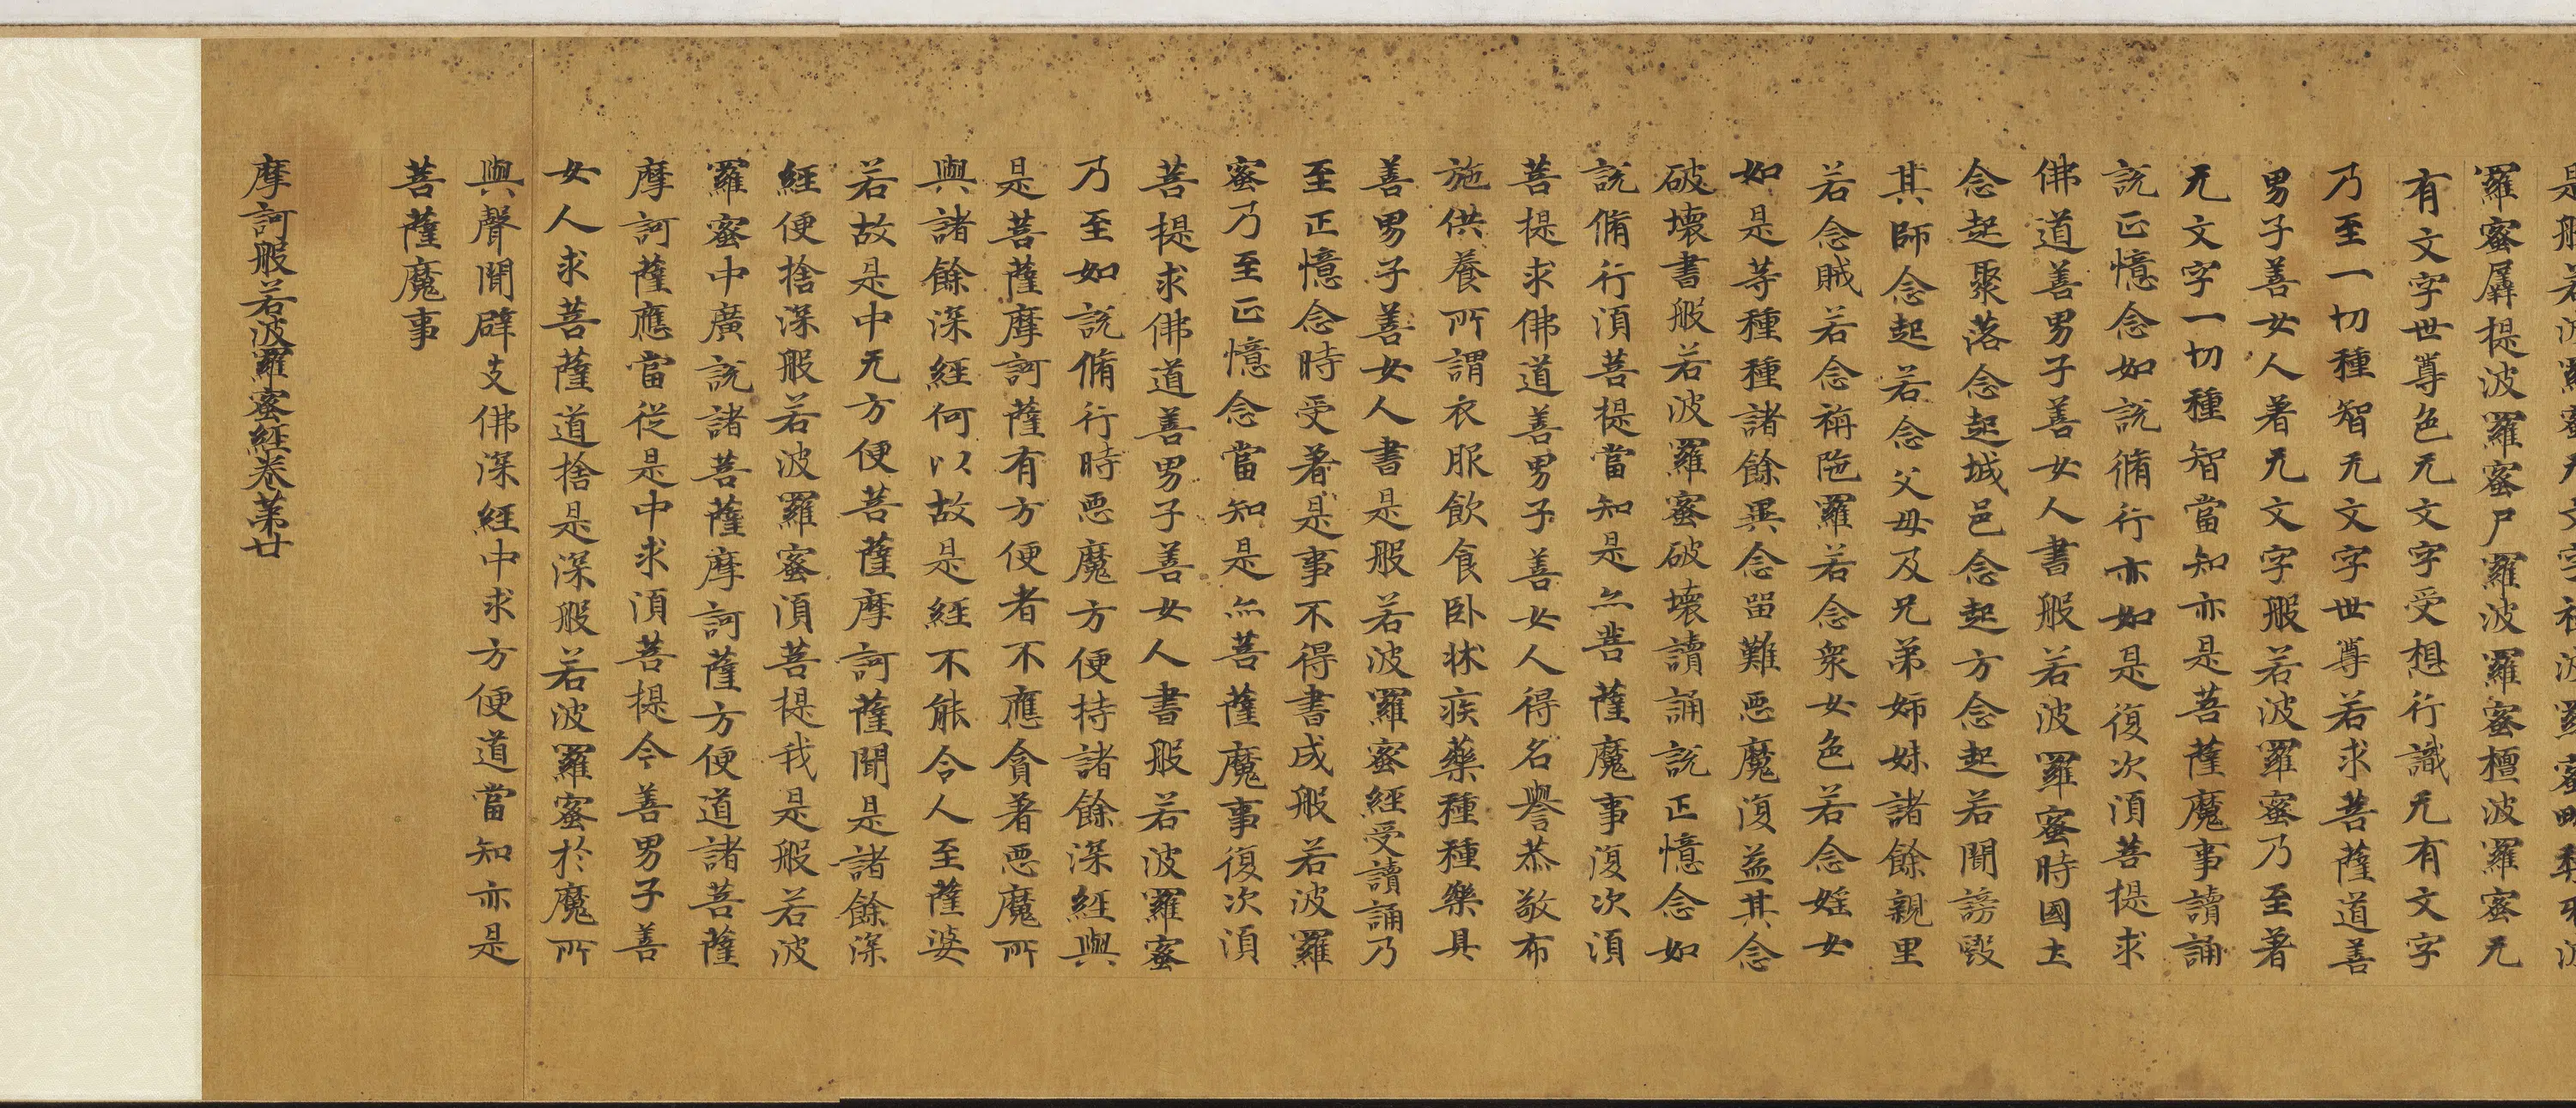 是般若波羅蜜无文字禪波羅蜜毗梨耶波
羅蜜羼提波羅蜜尸羅波羅蜜檀波羅蜜无
有文字世尊色无文字受想行識无有文字
乃至一切種智无文字世尊若求菩薩道善
男子善女人著无文字般若波羅蜜乃至著
无文字一切種智當知亦是菩薩魔事讀誦
說正憶念如說脩行亦如是復次湏菩提求
佛道善男子善女人書般若波羅蜜時國土
念起聚落念起城邑念起方念起若聞謗毀
其師念起若念父母及兄弟姉妹諸餘親里
若念賊若念栴陁羅若念衆女色若念婬女
如是等種種諸餘異念留難惡魔復益其念
破壞書般若波羅蜜破壞讀誦說正憶念如
說脩行湏菩提當知是亦菩薩魔事復次湏
菩提求佛道善男子善女人得名譽恭敬布
施供養所謂衣服飲食卧牀疾藥種種樂具
善男子善女人書是般若波羅蜜經受讀誦乃
至正憶念時受著是事不得書成般若波羅
蜜乃至正憶念當知是亦菩薩魔事復次湏
菩提求佛道善男子善女人書般若波羅蜜
乃至如說脩行時惡魔方便持諸餘深經與
是菩薩摩訶薩有方便者不應貪著惡魔所
與諸餘深經何以故是經不能令人至薩婆
若故是中无方便菩薩摩訶薩聞是諸餘深
經便捨深般若波羅蜜湏菩提我是般若波
羅蜜中廣說諸菩薩摩訶薩方便道諸菩薩
摩訶薩應當從是中求湏菩提今善男子善
女人求菩薩道捨是深般若波羅蜜於魔所
與聲聞辟支佛深經中求方便道當知亦是
菩薩魔事
摩訶般若波羅蜜經卷第廿